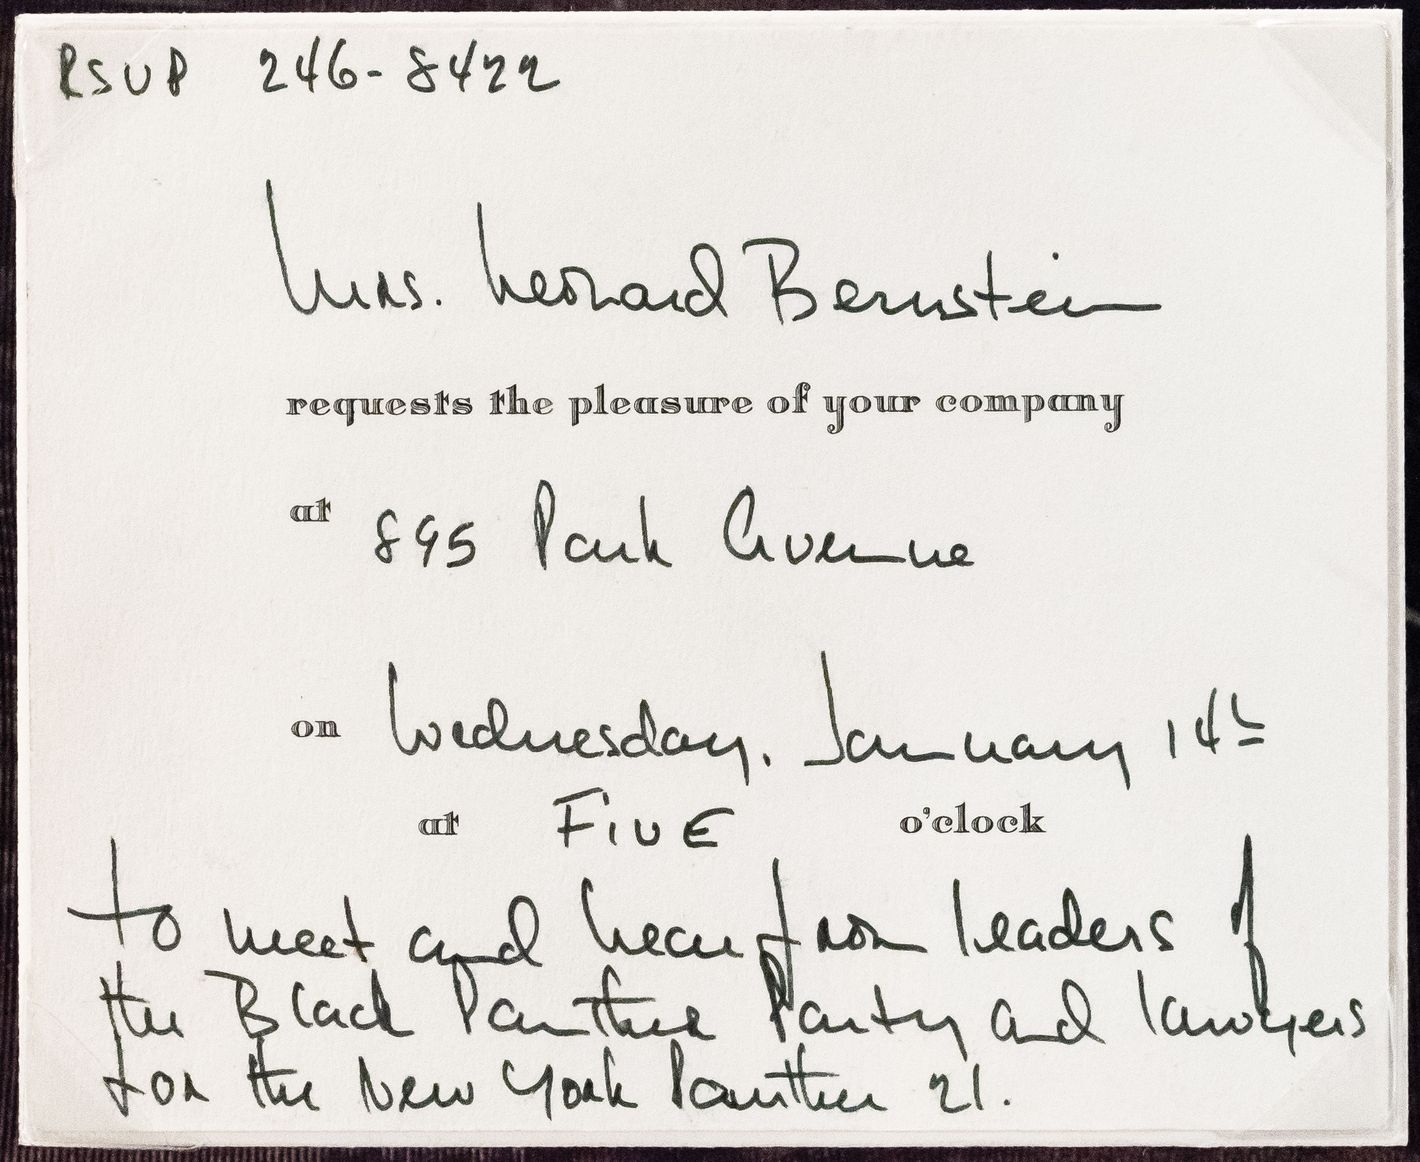 RSVP 246-8422
Mrs. Leonard Bernstein
requests the pleasure of your company
at 895 Park Avenue
on Wednesday. January 14th
at FIVE o'clock
to meet and hear from leaders of
the Black Panther Party and lawyers
for the New York Panther 21.